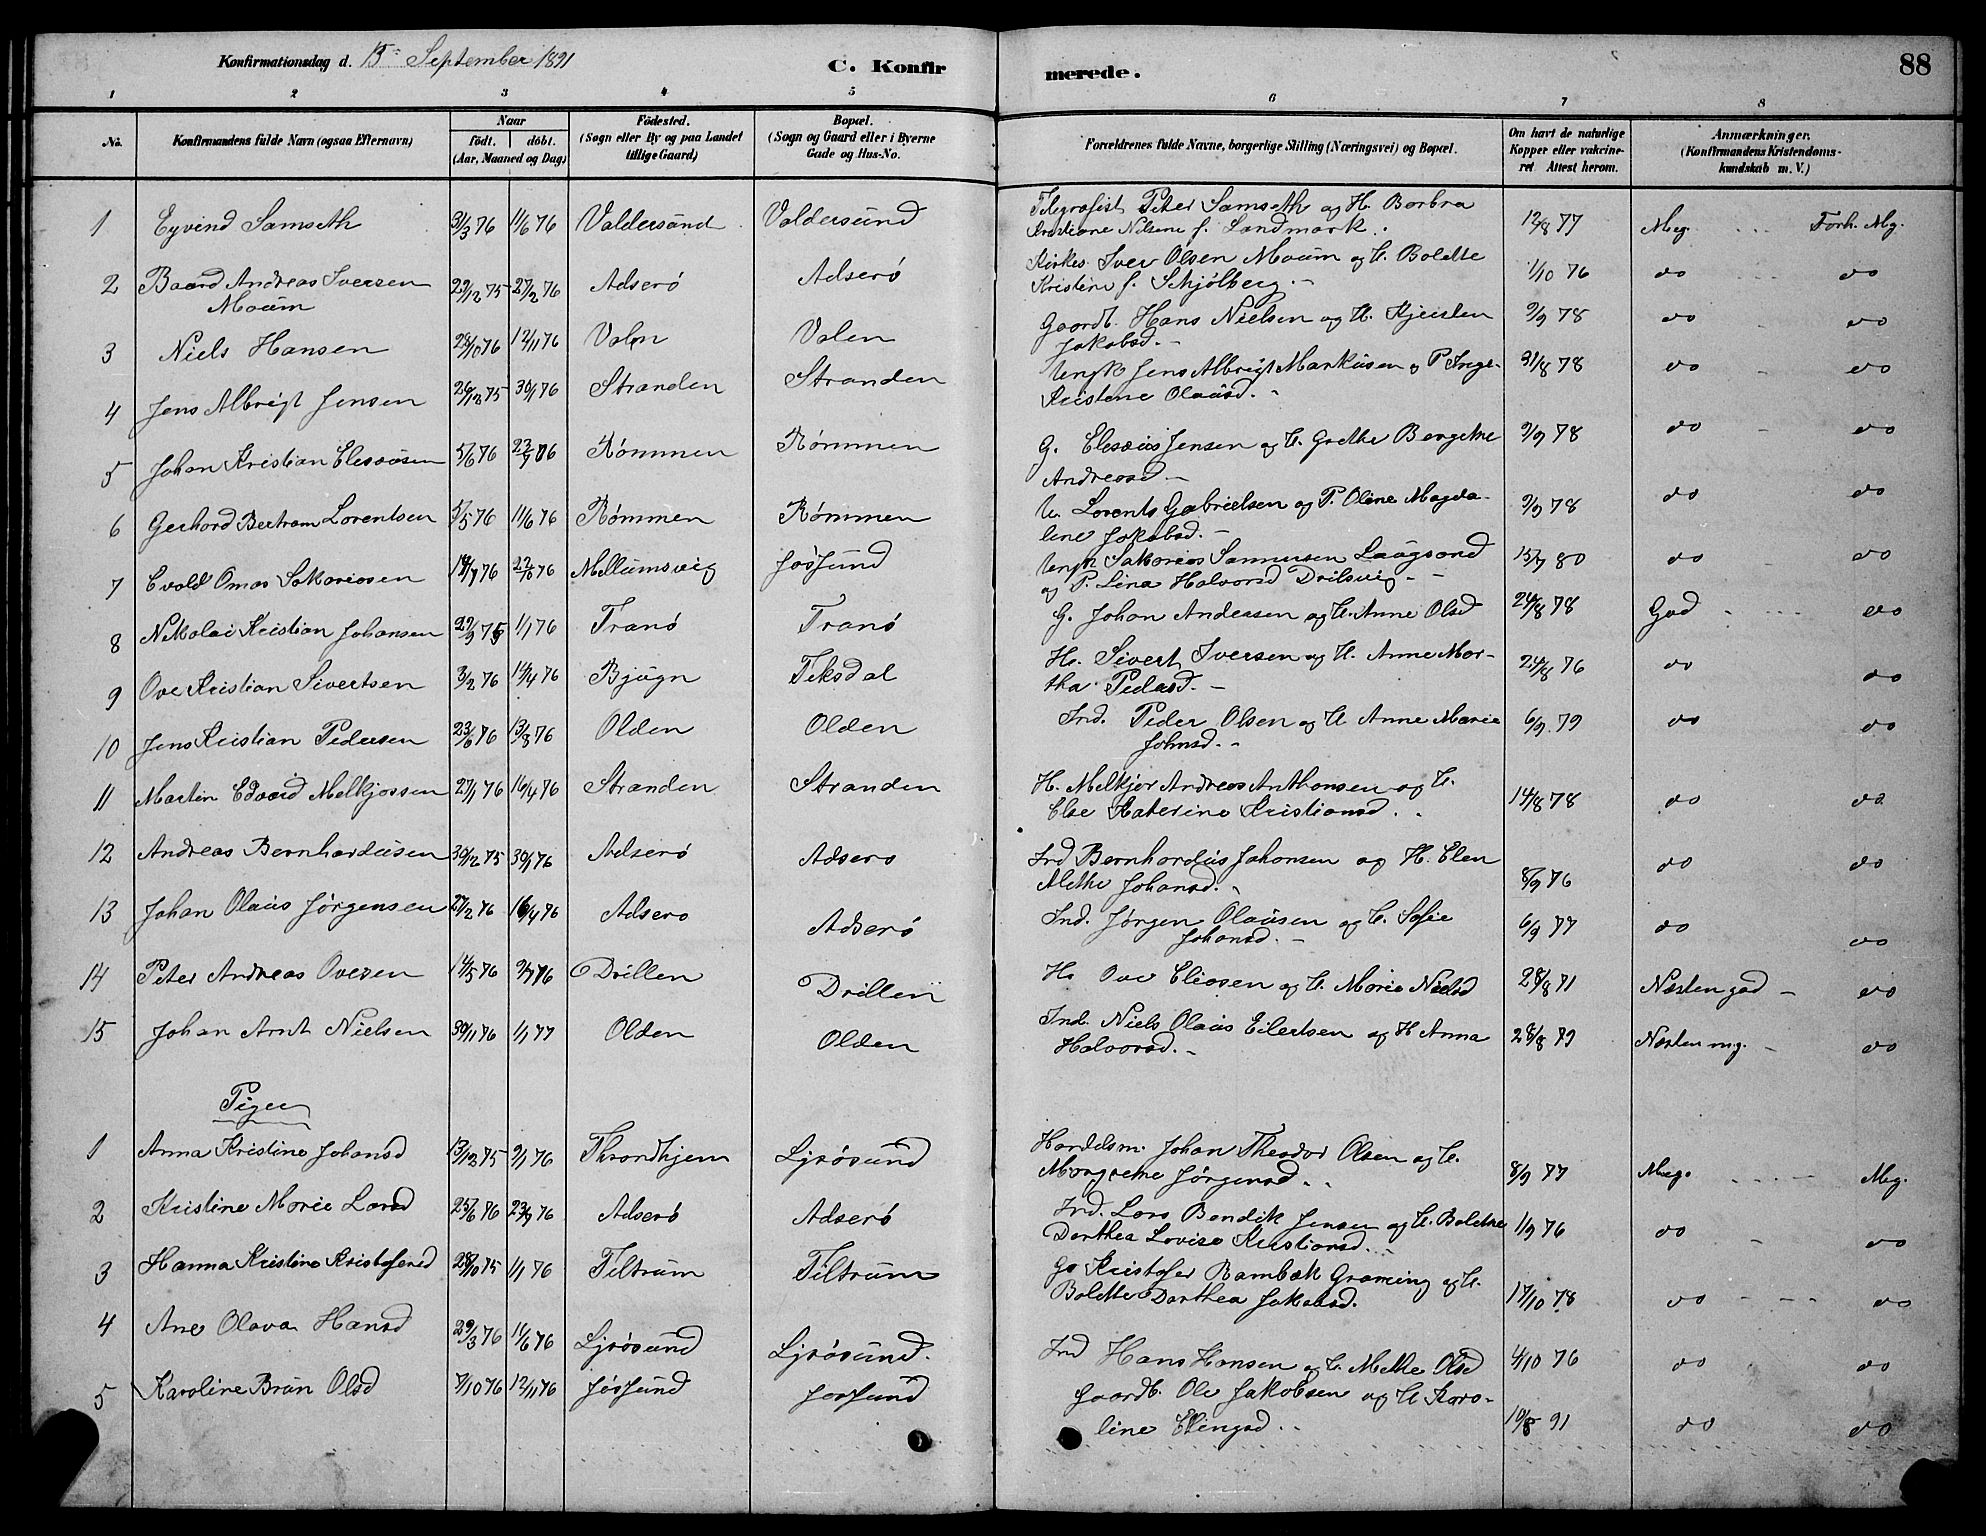 Konfirmationsdag d. 13 September 1891
C. Konfirmerede.
88
1 2 3 4 5 6 7 8
No.
Konfirmandens fulde Navn (ogsaa Efternavn)
Naar
født. døbt.
(Aar, Maaned og Dag)
Fødested.
(Sogn eller By og paa Landet
tillige Gaard)
Bopæl.
(Sogn og Gaard eller i Byerne
Gade og Hus-No.
Forældrenes fulde Navne, borgerlige Stilling (Næringsvei) og Bopæl.
Om havt de naturlige
Kopper eller vakcineret
Attest herom.
Anmærkninger.
(Konfirmandens Kristendomskundskab
m. V.)
1 Eyvind Samseth 31/3 76 11/6 76 Valdersund Valdersund Telegrafist Peter Samseth og H. Barbra 12/8 77 Meg. Forh. Mg.
Kristiane Nilsine f. Landmark.
2 Baard Andreas Iversen 29/12 75 27/2 76 Adserø Adserø Kirkes. Iver Olsen Moum og H. Boldte 1/10 76 do do
Moum Kristine f. Schjølberg.
3 Niels Hansen 28/10 76 12/11 76 Valen Valen Gaardb. Hans Nielsen og H. Kjersten 9/9 78 do do
Jakobsd.
4 Jens Albrigt Jensen 26/12 75 30/1 76 Stranden Stranden Ungk Jens Albrigt Markusen og P. Inge- 31/8 78 do do
Kristine Olausd.
5 Johan Kristian Elesæusen 5/6 76 23/7 76 Rømmen Rømmen G. Elesæus Jensen og H. Grethe Bergitte 9/9 78 do do
Andreasd
6 Gerhard Bertram Lorentsen 5/5 76 11/6 76 Rømmen Rømmen U. Lorents Gabrielsen og P. Oline Magda- 9/9 78 do do
line Jakobsd.
7 Evald Omas Sakariasen 76 76 Mellumsvig Jøssund Ungk Sakarias Laugsand 80 do do
og P. Lina Halvorsd Drilsvig
8 Nikolai Kristian Johansen 29/9 75 1/1 76 Tranø Tranø G. Johan Andersen og H. Anne Olsd 24/8 78 God do
9 Ove Kristian Sivertsen 3/2 76 76 Bjugn Teksdal Hs. Sivert Iversen og H. Anne Mar- 24/8 76 do do
tha Pedersd.
10 Jens Kristian Pedersen 23/6 76 13/8 76 Olden Olden Ind. Peder Olsen og H Anne Marie 6/9 79 do do
Johnsd.
11 Martin Edvard Melkjorsen 27/1 76 16/4 76 Stranden Stranden H. Melkjor Andreas Anthonsen og H. 14/8 78 do do
Else Katerine Kristiansd.
12 Andreas Bernhardusen 30/12 75 30/1 76 Adserø Adsero Ind Bernhardus Johansen og H. Elen 8/9 76 do do
Methe Johansd.
13 Johan Olaus Jørgensen 27/2 76 16/4 76 Adsero Adserø Ind. Jørgen Olausen og H. Sofie 6/9 77 do do
Johansd.
14 Peter Andreas Ovesen 14/5 76 9/7 76 Drillen Drillen Hs Ove Eliasen og H. Marie Nielsd 28/8 71 Næsten god do
15 Johan Arnt Nielsen 30/11 76 1/1 77 Olden Olden Ind. Niels Olaus Eilertsen og H Anna 28/8 79 Næsten mg. do
Halvorsd.
Piger
1 Anna Kristine Johansd 13/12 75 9/1 76 Throndhjem Ljøsund Handelsm. Johan Theodor Olsen og H. 8/9 77 Meg. Mg.
Margrethe Jørgensd.
2 Kristine Marie Larsd 25/6 76 23/9 76 Adserø Adserø Ind. Lars Bendik Jensen og H. Bolethe 1/9 76 do do
Dorthea Lovise Kristiansd.
3 Hanna Kristine Kristofersd 28/10 75 1/1 76 Tiltrum Tiltrum Ga Kristofer Rambæk Graming og H. 17/10 78 do do
Bolette Dorthea Jakobsd.
4 Ane Olava Hansd 29/3 76 11/6 76 Ljøsund Ljøsund. Ind Hans Hansen og H. Methe Olsd 4/10 76 do do
5 Karoline Brun Olsd 7/10 76 12/11 76 Jøssund Jøssund Gaardb. Ole Jakobsen og H Karo- 10/8 91 do do
line Elingsd.